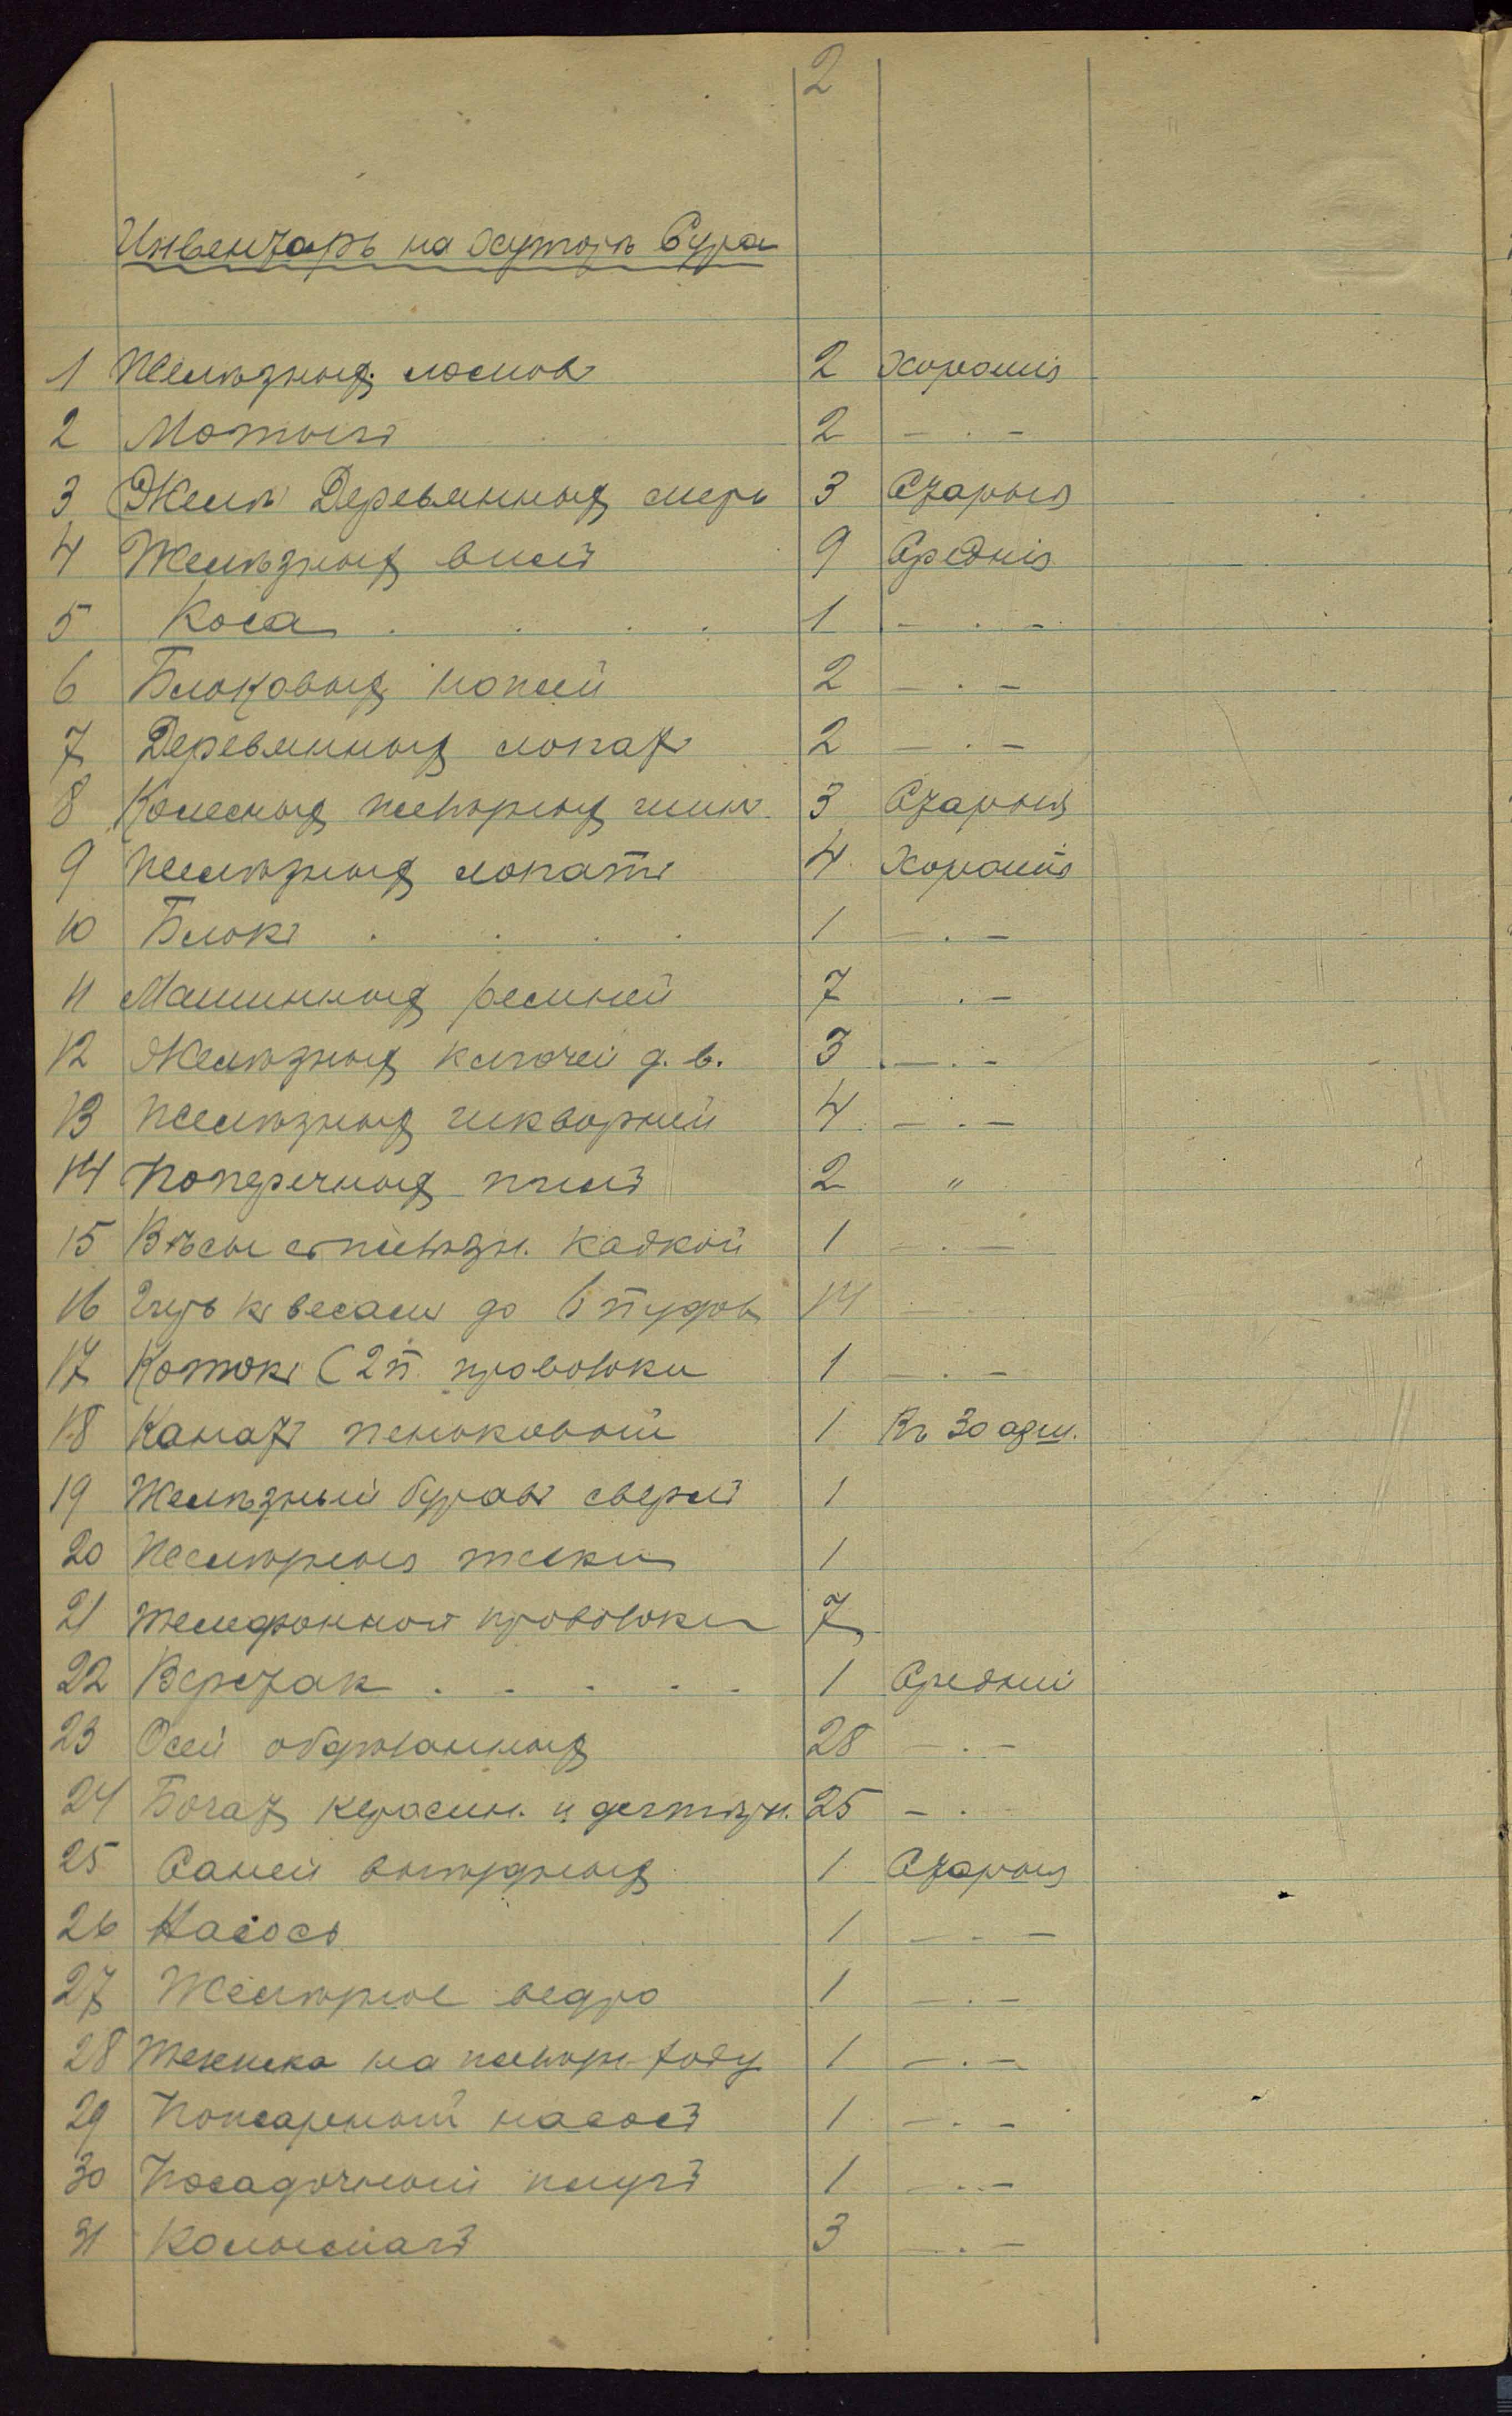 2
Инвентарь на хуторъ Сура
1 Желѣзныхъ ломовъ 2 Хорошiя
2 Мотыгъ 2 — . —
3 Желѣ Деревянныхъ мѣръ 3 Старыя
4 Желѣзныхъ вилъ 9 Среднiя
5 Коса . . . . 1 — . —
6 Блоковыхъ ножей 2 — . —
7 Деревянныхъ лопатъ 2 — . —
8 Колесныхъ желѣзныхъ шинъ 3 Старыя
9 Желѣзныхъ лопатъ 4 Хорошiя
10 Блокъ . . . . 1 — . —
11 Машинныхъ ремней 7 . —
12 Желѣзныхъ ключей д. в. 3 — . —
13 Желѣзныхъ шкворней 4 — . —
14 Поперечныхъ пилъ 2 "
15 Вѣсы съ желѣзн. кадкой 1 — . —
16 Гирь къ весамъ до 6 пудовъ 14
17 Мотокъ (2 п. проволоки 1 — . —
18 Канатъ пеньковый 1 Въ 30 арш.
19 Желѣзный буравъ сверлъ 1
20 Желѣзныя 1
21 Телефонной проволоки 7
22 Верстак . . . . . 1 Среднiй
23 Осей обдѣланныхъ 28 — . —
24 Бочагъ керосин. и дегтярн. 25 — .
25 Саней выѣздныхъ 1 Старыя
26 Насосъ 1 — . —
27 Желѣзное ведро 1 — . —
28 Тележка на желѣзн. ходу 1 — . —
29 Пожарный насосъ 1 — . —
30 Посадочный плугъ 1 — . —
31 Колымагъ 3 — . —